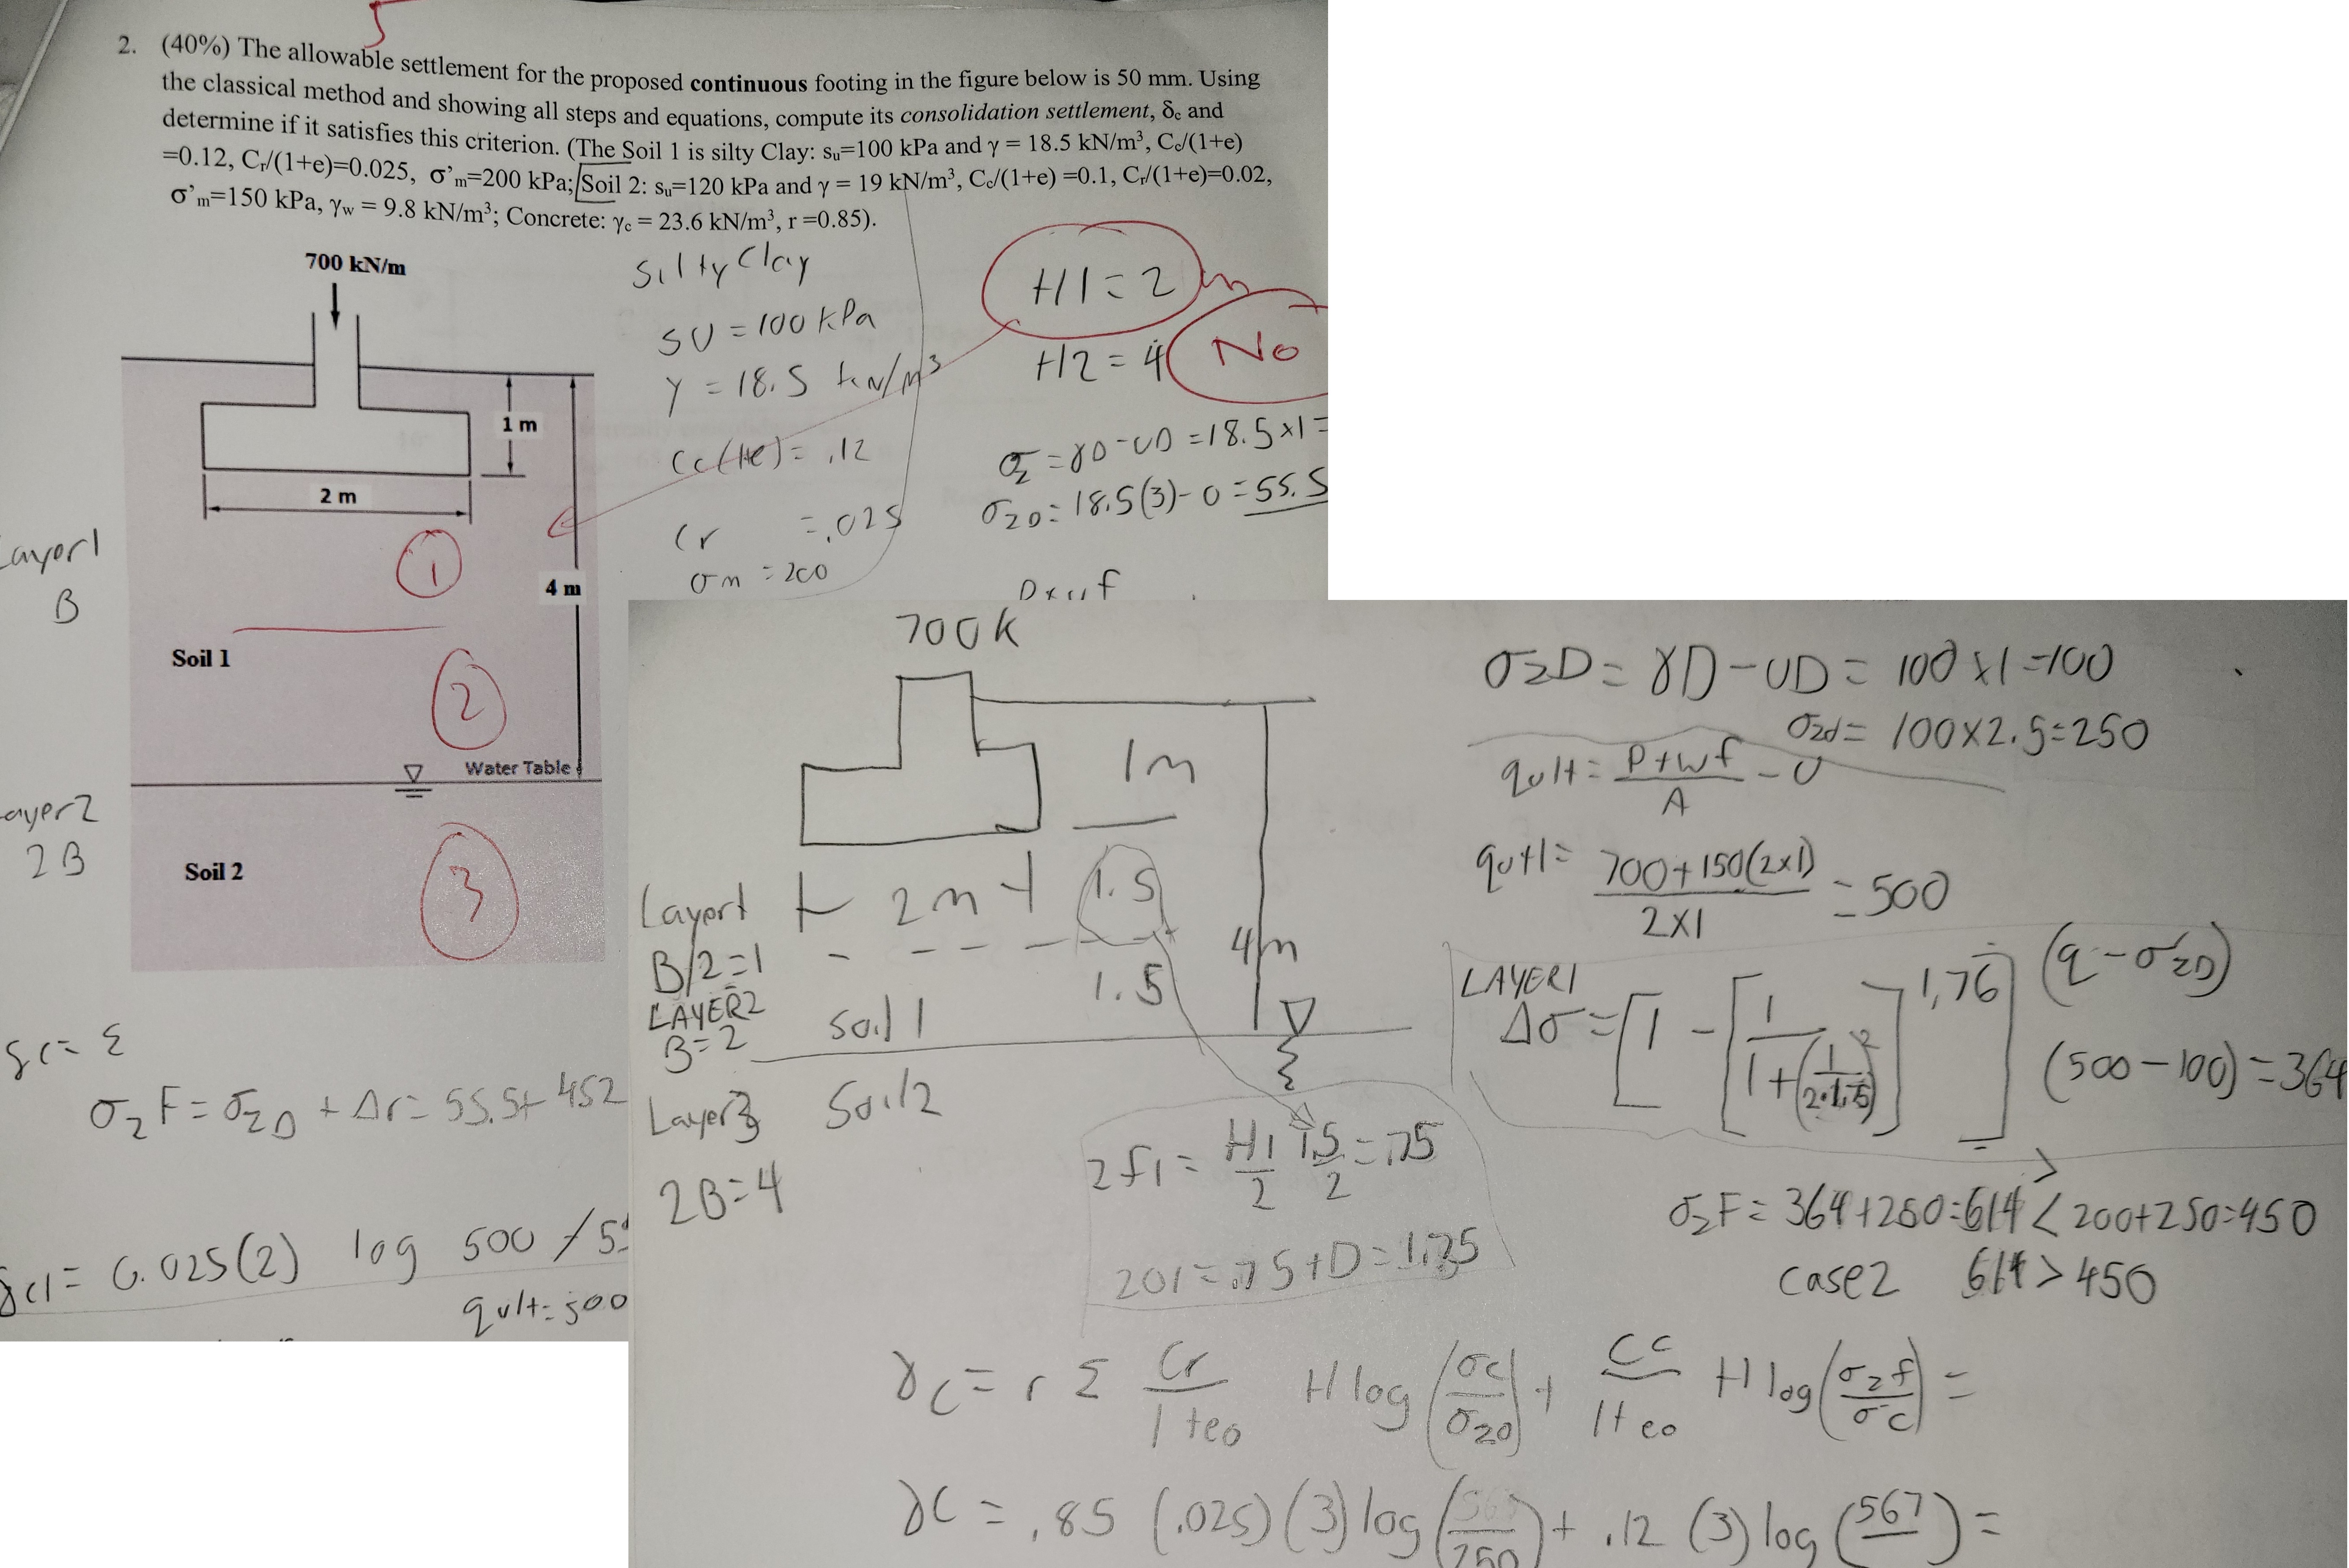 5
2. (40%) The allowable settlement for the proposed continuous footing in the figure below is 50 mm. Using
the classical method and showing all steps and equations, compute its consolidation settlement, δc and
determine if it satisfies this criterion. (The Soil 1 is silty Clay: su=100 kPa and γ = 18.5 kN/m³, Cc/(1+e)
=0.12, Cr/(1+e)=0.025, σ'm=200 kPa; Soil 2: su=120 kPa and γ = 19 kN/m³, Cc/(1+e) =0.1, Cr/(1+e)=0.02,
σ'm=150 kPa, γw = 9.8 kN/m³; Concrete: γc = 23.6 kN/m³, r =0.85).
700 kN/m
1 m
2 m
4 m
Soil 1
Water Table
Soil 2
1
2
3
Layer1
B
Layer2
2B
Silty Clay
SU = 100 kPa
γ = 18.5 kN/m³
Cc(1+e) = .12
Cr = .025
σm = 200
H1 = 2 m
H2 = 4
No
σz = γD - UD = 18.5×1 =
σzD = 18.5(3) - 0 = 55.5
δc = Σ
σzF = σzD + Δσ = 55.5 + 452
δc1 = 0.025(2) log 500 / 55
qult = 500
700 K
1m
2m
1.5
1.5
4m
Layer1
B/2=1
LAYER2
B=2
Soil 1
Layer3
2B=4
Soil 2
zf1 = H1/2 1.5/2 = .75
z01 = .75 + D = 1.75
σzD = γD - UD = 100 × 1 = 100
σzd = 100 × 2.5 = 250
qult = P+Wf/A - U
qult = 700+150(2×1)/2×1 = 500
LAYER1
Δσ = [1 - [1/1+(1/2·1.75)²]^1.76] (q - σ'zD)
(500-100) = 364
σzF = 364+250=614 < 200+250=450
>
case2 614 > 450
γc = r Σ Cr/1+eo H log (σc/σzo) + Cc/1+eo H log (σzf/σc) =
γc = .85 (.025)(3) log (/250) + .12 (3) log (567/ ) =